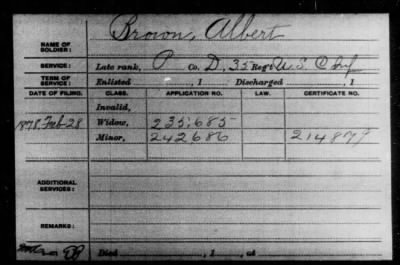 Brown, Albert
NAME OF SOLDIER:
SERVICE: Late rank, P Co. D, 35 Reg't U.S.C Inf
TERM OF SERVICE: Enlisted , 1 Discharged , 1
DATE OF FILING. CLASS. APPLICATION NO. LAW. CERTIFICATE NO.
Invalid,
1878, Feb-28 Widow, 235,685
Minor, 242686 214879
ADDITIONAL SERVICES:
REMARKS:
Died , 1 , at